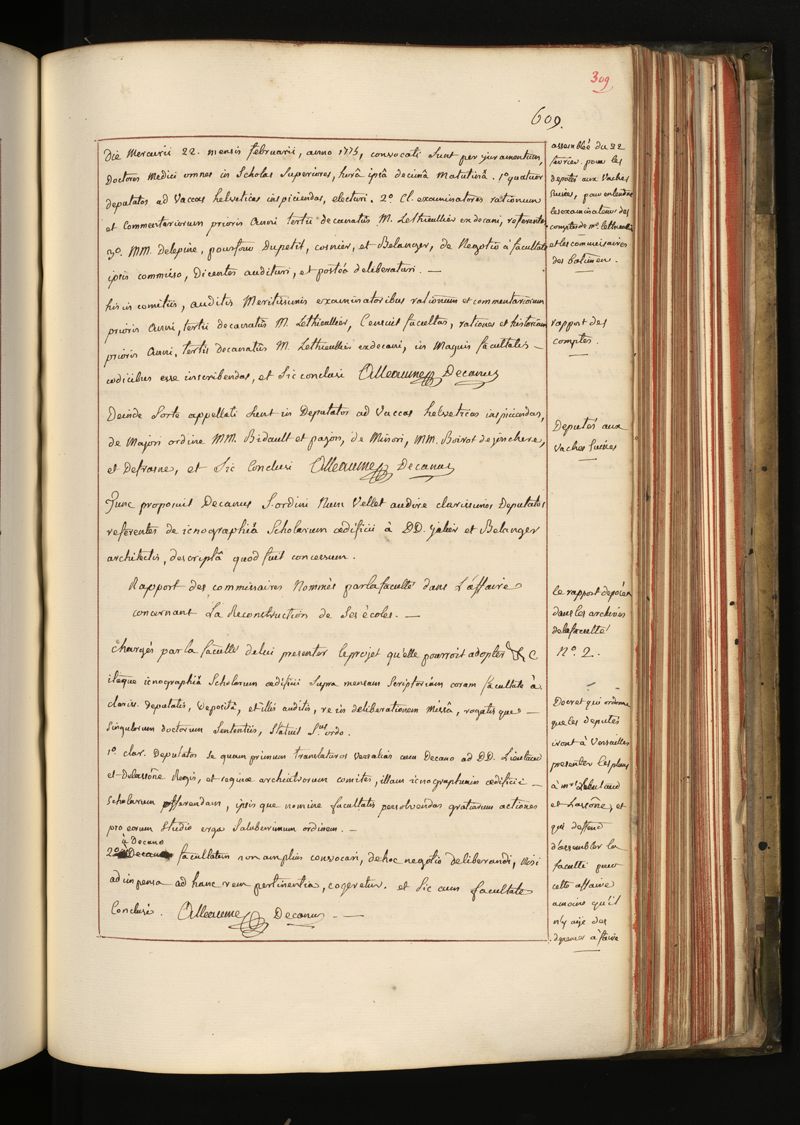 309
609.
Die Mercurii 22. mensis februarii, anno 1775, convocati sunt per juramentum,
Doctores Medici omnes in Scholas Superiores, horâ ipsâ decimâ matutinâ. 1º quatuor
deputatos ad Vaccas helveticas inspiciendas electuri. 2º Cl. examinatores rationum
et Commentariorum prioris Anni tertii decanatûs M. Lethieullier exdecani, referentes
3º. MM. delepine, poissonier Dupetit, cosnier, et Belanger, de Negotio à facultate
ipsis commisso, Dicentes audituri, et posteà deliberaturi. —
his in comitiis, auditis Meritissimis examinatoribus rationum et commentariorum
prioris Anni, tertii decanatûs M. Lethieullier, Censuit facultas, rationes et historiam
prioris Anni, tertii decanatûs M. Lethieullier exdecani, in Magnis facultatis —
codicibus esse inscribendas, et sic conclusi Alleaume Decanus
Deinde Sorte appellati sunt in Deputatos ad Vaccas helveticas inspiciendas,
de Majori ordine MM. Bidault et pajon, de Minori, MM. Boirot de joncheres,
et Defrasne, et sic Conclusi Alleaume Decanus
Tunc proposuit Decanus S. ordini Num Vellet audire clarissimos Deputatos
referentes de icnographiâ Scholarum œdificii à DD. jallier et Belanger
architectis, descriptâ quod fuit concessum.
Rapport des commissaires Nommés par la faculté dans L'affaire
concernant La Reconstruction de Ses écoles. —
Chargés par la faculté de lui presenter le projet qu'elle pourroit adopter & C
itaque icnographiâ Scholarum œdificii supra mensam Scriptoriam coram facultate à
clariss. deputatis, deposità, et illis auditis, re in deliberationem missâ, rogatis que —
Singulorum doctorum Sententiis, Statuit S.us ordo.
1º. clar. Deputatos se quam primum translaturos Versalias cum Decano ad DD. Lieutaud
et Delassône Regis, et reginæ archiatrorum comites, illam icnographiam œdificii —
Scholarum offerendam, ipsis que nomine facultatis persolvendas gratiarum actiones
pro eorum Studio erga Saluberrimum ordinem. —
à Decano
2º facultatem non ampliùs convocari, de hoc negotio deliberandi, nisi
ad impensa ad hanc rem pertinentia, cogeretur. et sic cum facultate
Conclusi. Alleaume Decanus —
assemblée du 22
fevrier pour les
deputés aux Vaches
suisses, pour entendre
les examinateurs des
comptes de mr. lethieullier
et les commissaires
des batimens.
rapport des
comptes.
Deputés aux
vaches suisses
le rapport deposé
dans les archives
de la faculté
Nº. 2.
Decret qui ordonne
que les deputés
iront à Versailles
presenter les plans
à mrs Lieutaud
et Lassône, et
qui deffend
d'assembler la
faculté pour
cette affaire
amoins qu'il
n'y aije des
depenses à faire